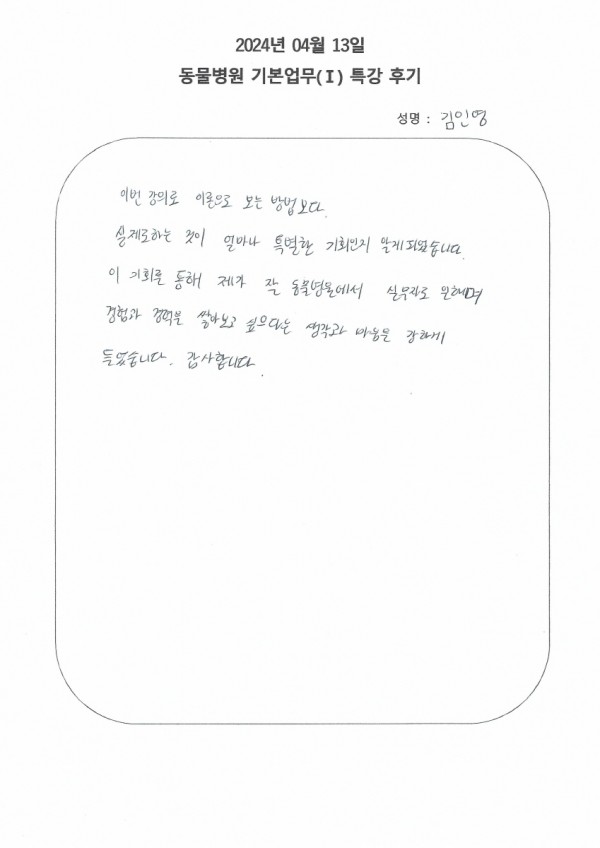 2024년 04월 13일
동물병원 기본업무(I) 특강 후기
성명 : 김인영
이번 강의로 이론으로 보는 방법보다.
실제로하는 것이 얼마나 특별한 기회인지 알게되었습니다.
이 기회를 통해 제가 잘 동물병원에서 실무자로 일하며
경험과 경력을 쌓아보고 싶으다는 생각과 마음을 강하게
들었습니다. 감사합니다.